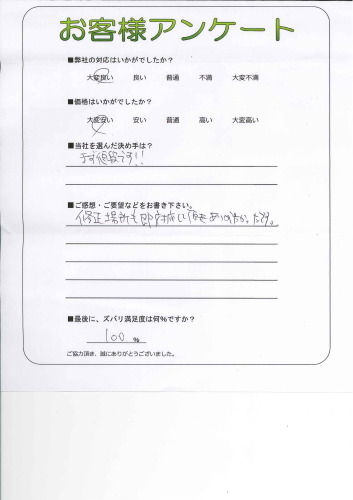 お客様アンケート
■弊社の対応はいかがでしたか？
大変良い 良い 普通 不満 大変不満
■価格はいかがでしたか？
大変安い 安い 普通 高い 大変高い
■当社を選んだ決め手は？
まず値段です!!
■ご感想・ご要望などをお書き下さい。
修正場所も即対応して頂きありがたかったです。
■最後に、ズバリ満足度は何％ですか？
100 %
ご協力頂き、誠にありがとうございました。